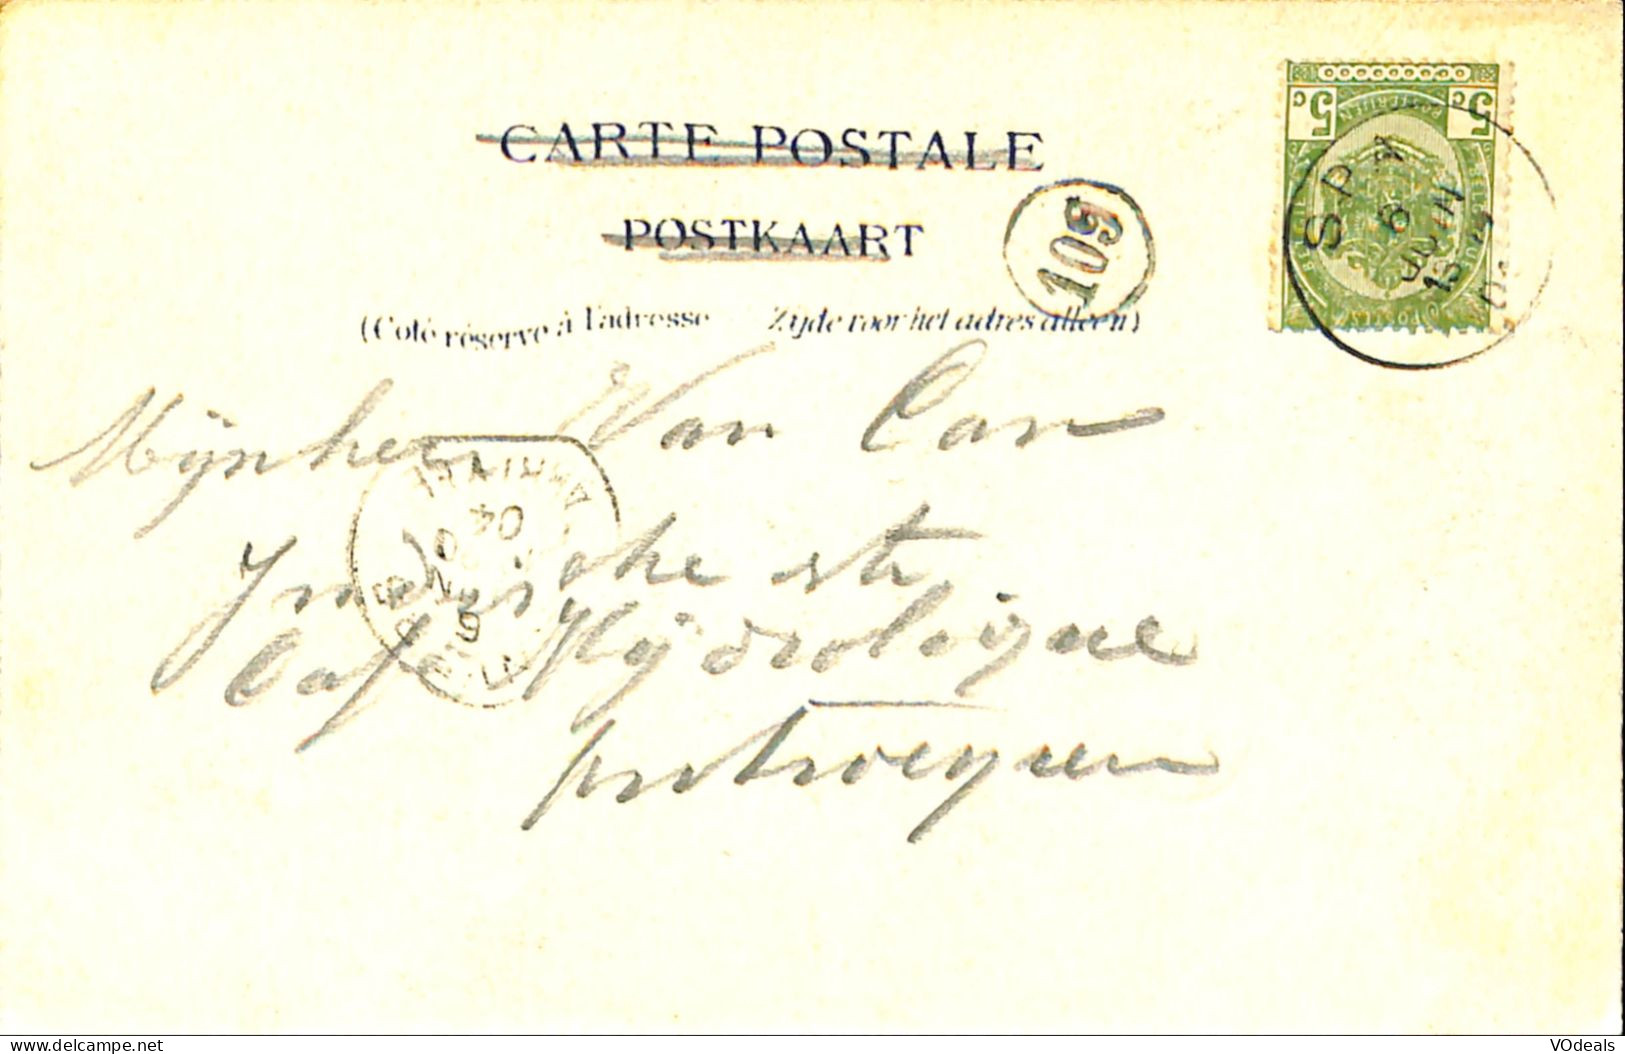 CARTE POSTALE
POSTKAART
109
(Coté réservé à l'adresse Zijde voor het adres alleen)
5c 5c
SPA
6
JUIN
13
Mijnheer Van Can
str
Café Hydrolique
Antwerpen
04
VOdeals